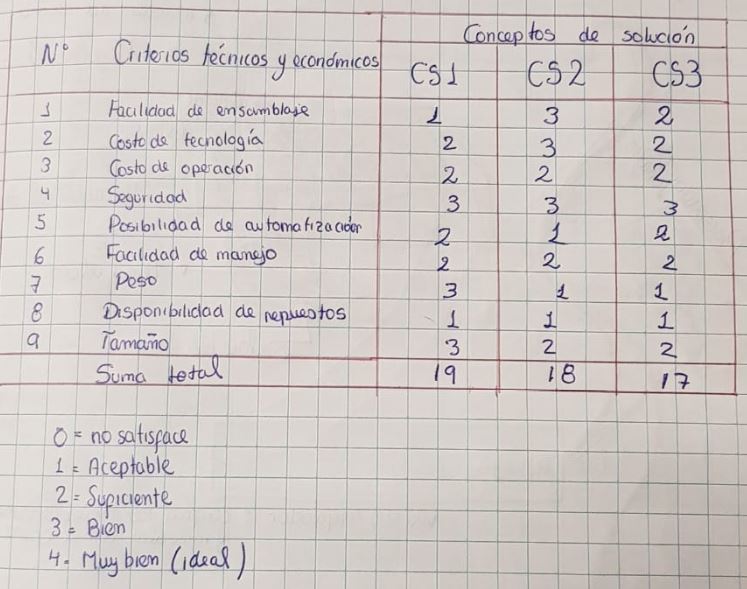 Conceptos de solución
N° Criterios técnicos y económicos CS1 CS2 CS3
1 Facilidad de ensamblaje 1 3 2
2 Costo de tecnología 2 3 2
3 Costo de operación 2 2 2
4 Seguridad 3 3 3
5 Posibilidad de automatización 2 1 2
6 Facilidad de manejo 2 2 2
7 Peso 3 1 1
8 Disponibilidad de repuestos 1 1 1
9 Tamaño 3 2 2
Suma total 19 18 17
0 = no satisface
1 = Aceptable
2 = Suficiente
3 = Bien
4 = Muy bien (ideal)